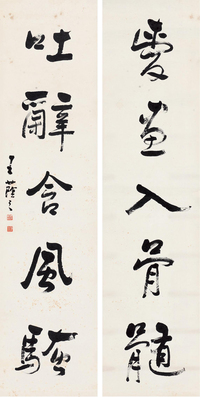 愛畫入骨髓
吐辭合風騷
王蘧常